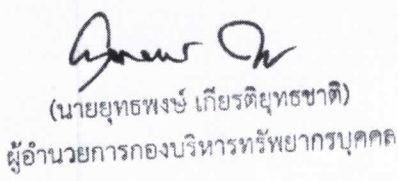 (นายยุทธพงษ์ เกียรติยุทธชาติ)
ผู้อำนวยการกองบริหารทรัพยากรบุคคล